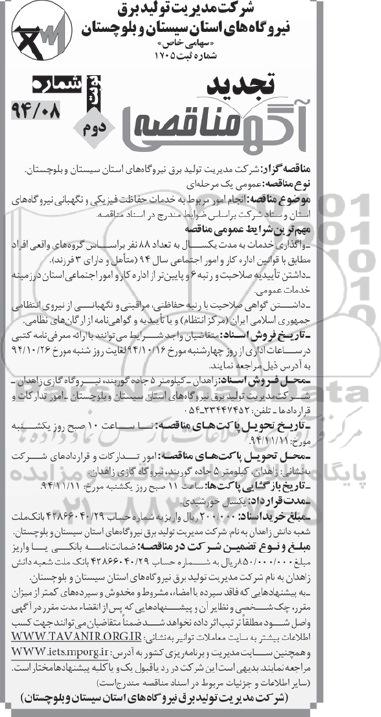 شرکت مدیریت تولید برق
نیروگاه‌های استان سیستان و بلوچستان
«سهامی خاص»
شماره ثبت ۱۷۰۵
تجدید
آگهی مناقصه
نوبت دوم
شماره
۹۴/۰۸
مناقصه گزار: شرکت مدیریت تولید برق نیروگاه‌های استان سیستان و بلوچستان.
نوع مناقصه: عمومی یک مرحله‌ای
موضوع مناقصه: انجام امور مربوط به خدمات حفاظت فیزیکی و نگهبانی نیروگاه‌های
استان و ستاد شرکت براساس ضوابط مندرج در اسناد مناقصه.
مهم‌ترین شرایط عمومی مناقصه
ـ واگذاری خدمات به مدت یکسال به تعداد ۸۸ نفر براساس گروه‌های واقعی افراد
مطابق با قوانین اداره کار و امور اجتماعی سال ۹۴ (متأهل و دارای ۳ فرزند).
ـ داشتن تأییدیه صلاحیت و رتبه ۶ و پایین‌تر از اداره کار و امور اجتماعی استان در زمینه
خدمات عمومی.
ـ داشتن گواهی صلاحیت یا رتبه حفاظتی، مراقبتی و نگهبانی از نیروی انتظامی
جمهوری اسلامی ایران (مرکز انتظام) و یا تأییدیه و گواهی‌نامه از ارگان‌های نظامی.
ـ تاریخ فروش اسناد: متقاضیان واجد شرایط می‌توانند با ارائه معرفی‌نامه کتبی
در ساعات اداری از روز چهارشنبه مورخ ۹۴/۱۰/۱۶ لغایت روز شنبه مورخ ۹۴/۱۰/۲۶
به آدرس ذیل مراجعه نمایند.
ـ محل فروش اسناد: زاهدان ـ کیلومتر ۵ جاده گوربند، نیروگاه گازی زاهدان ـ
شرکت مدیریت تولید برق نیروگاه‌های استان سیستان و بلوچستان ـ امور تدارکات و
قراردادها ـ تلفن: ۳۳۴۴۷۴۵۲ـ۰۵۴
ـ تاریخ تحویل پاکت‌های مناقصه: تا ساعت ۱۰ صبح روز یکشنبه
مورخ: ۹۴/۱۱/۱۱
ـ محل تحویل پاکت‌های مناقصه: امور تدارکات و قراردادهای شرکت
به نشانی: زاهدان، کیلومتر ۵ جاده، گوربند، نیروگاه گازی زاهدان
ـ تاریخ بازگشایی پاکت‌ها: ساعت ۱۱ صبح روز یکشنبه مورخ: ۹۴/۱۱/۱۱
ـ مدت قرارداد: یکسال خورشیدی.
ـ مبلغ خرید اسناد: ۳۰۰/۰۰۰ ریال واریز به شماره حساب ۴۳۸۶۶۰۴۰/۲۹ بانک ملت
شعبه دانش زاهدان به نام: شرکت مدیریت تولید برق نیروگاه‌های استان سیستان و بلوچستان.
مبلغ و نوع تضمین شرکت در مناقصه: ضمانت‌نامه بانکی یا واریز
مبلغ ۸۵۰/۰۰۰/۰۰۰ ریال به شماره حساب ۴۳۸۶۶۰۴۰/۲۹ بانک ملت شعبه دانش
زاهدان به نام شرکت مدیریت تولید برق نیروگاه‌های استان سیستان و بلوچستان.
ـ به پیشنهادهایی که فاقد سپرده یا امضاء، مشروط و مخدوش و سپرده‌های کمتر از میزان
مقرر، چک شخصی و نظایر آن و پیشنهادهایی که پس از انقضاء مدت مقرر در آگهی
واصل شود مطلقاً ترتیب اثر داده نخواهد شد ضمناً متقاضیان می‌توانند جهت کسب
اطلاعات بیشتر به سایت معاملات توانیر به نشانی: WWW.TAVANIR.ORG.IR
و همچنین سایت مدیریت و برنامه‌ریزی کشور به آدرس: WWW.iets.mporg.ir
مراجعه نمایند. بدیهی است این شرکت در رد یا قبول یک و یا کلیه پیشنهادها مختار است.
(سایر اطلاعات و جزئیات مربوط در اسناد مناقصه مندرج است)
(شرکت مدیریت تولید برق نیروگاه‌های استان سیستان و بلوچستان)